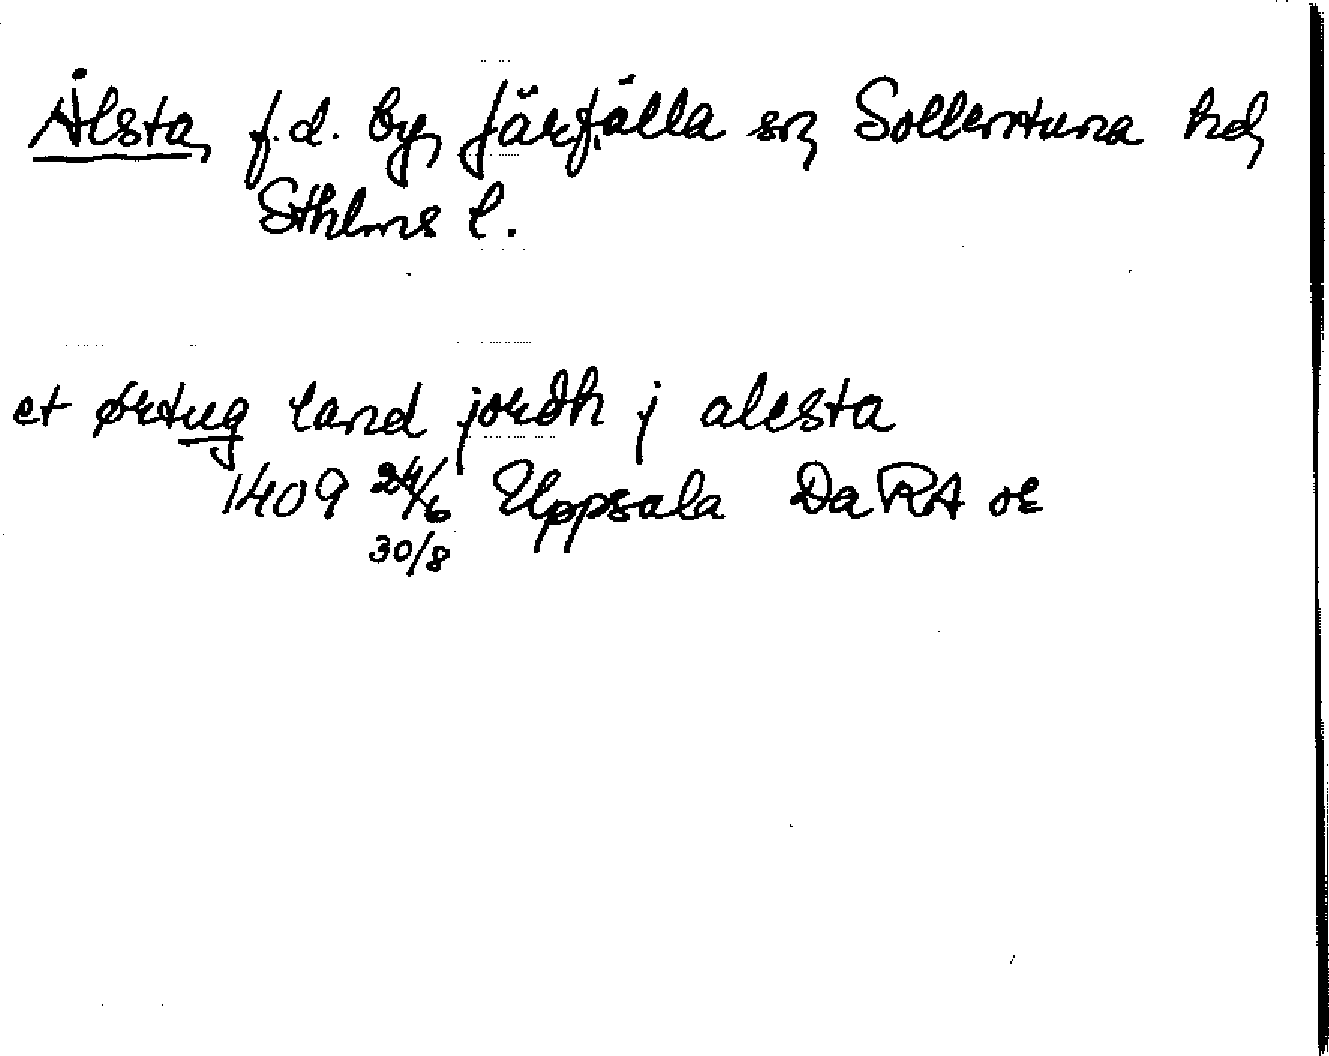 Ålsta, f.d. by, Järfälla sn, Sollentuna hd,
Sthlms l.
et ørtug land jordh j alesta
1409 24/6 Uppsala Da RA or
30/8